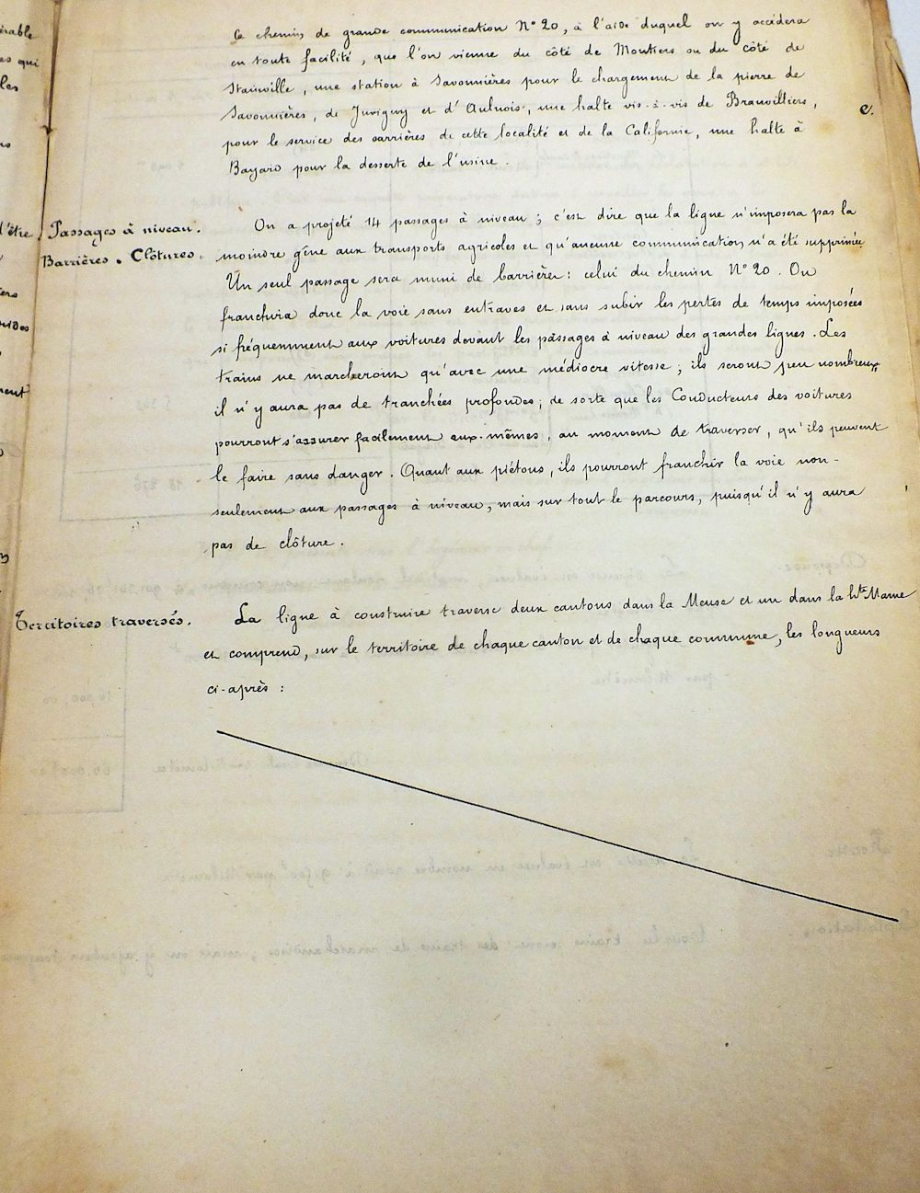 le chemin de grande communication N° 20, à l'aide duquel on y accédera
en toute facilité, que l'on vienne du côté de Montiers ou du côté de
Stainville, une station à Savonnières pour le chargement de la pierre de
Savonnières, de Juvigny et d'Aulnois, une halte vis-à-vis de Brauvilliers,
pour le service des carrières de cette localité et de la Californie, une halte à
Bayard pour la desserte de l'usine.
Passages à niveau.
Barrières. Clôtures.
On a projeté 14 passages à niveau ; c'est dire que la ligne n'imposera pas la
moindre gêne aux transports agricoles et qu'aucune communication n'a été supprimée
Un seul passage sera muni de barrières : celui du chemin N° 20. On
franchira donc la voie sans entraves et sans subir les pertes de temps imposées
si fréquemment aux voitures devant les passages à niveau des grandes lignes. Les
trains ne marcheront qu'avec une médiocre vitesse ; ils seront peu nombreux,
il n'y aura pas de tranchées profondes, de sorte que les Conducteurs des voitures
pourront s'assurer facilement eux-mêmes, au moment de traverser, qu'ils peuvent
le faire sans danger. Quant aux piétons, ils pourront franchir la voie non-
seulement aux passages à niveau, mais sur tout le parcours, puisqu'il n'y aura
pas de clôture.
Territoires traversés.
La ligne à construire traverse deux cantons dans la Meuse et un dans la Hte Marne
et comprend, sur le territoire de chaque canton et de chaque commune, les longueurs
ci-après :